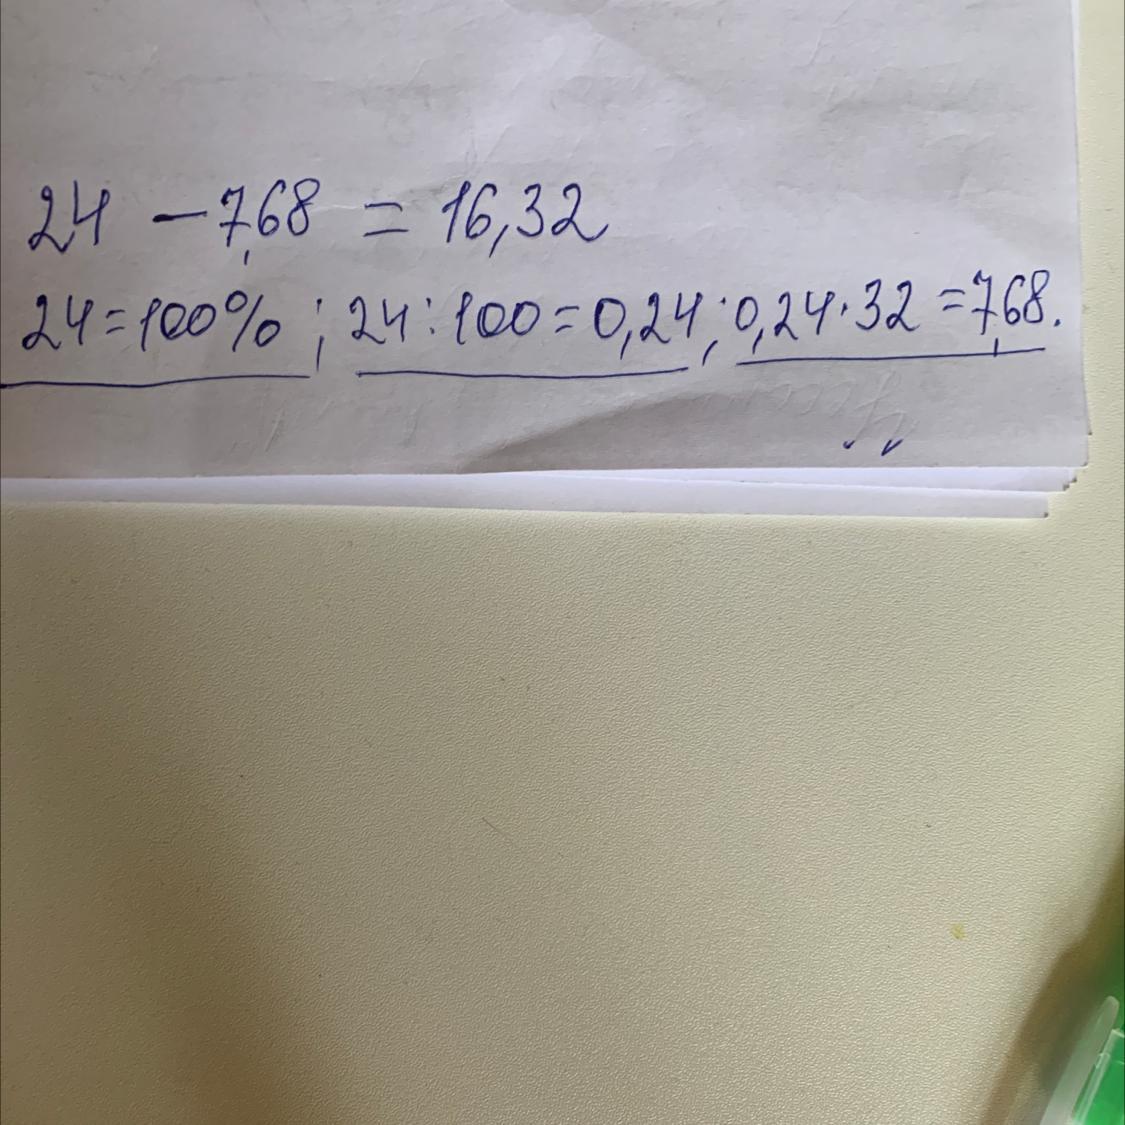 24 - 7,68 = 16,32
24=100% ; 24:100=0,24; 0,24·32=7,68.